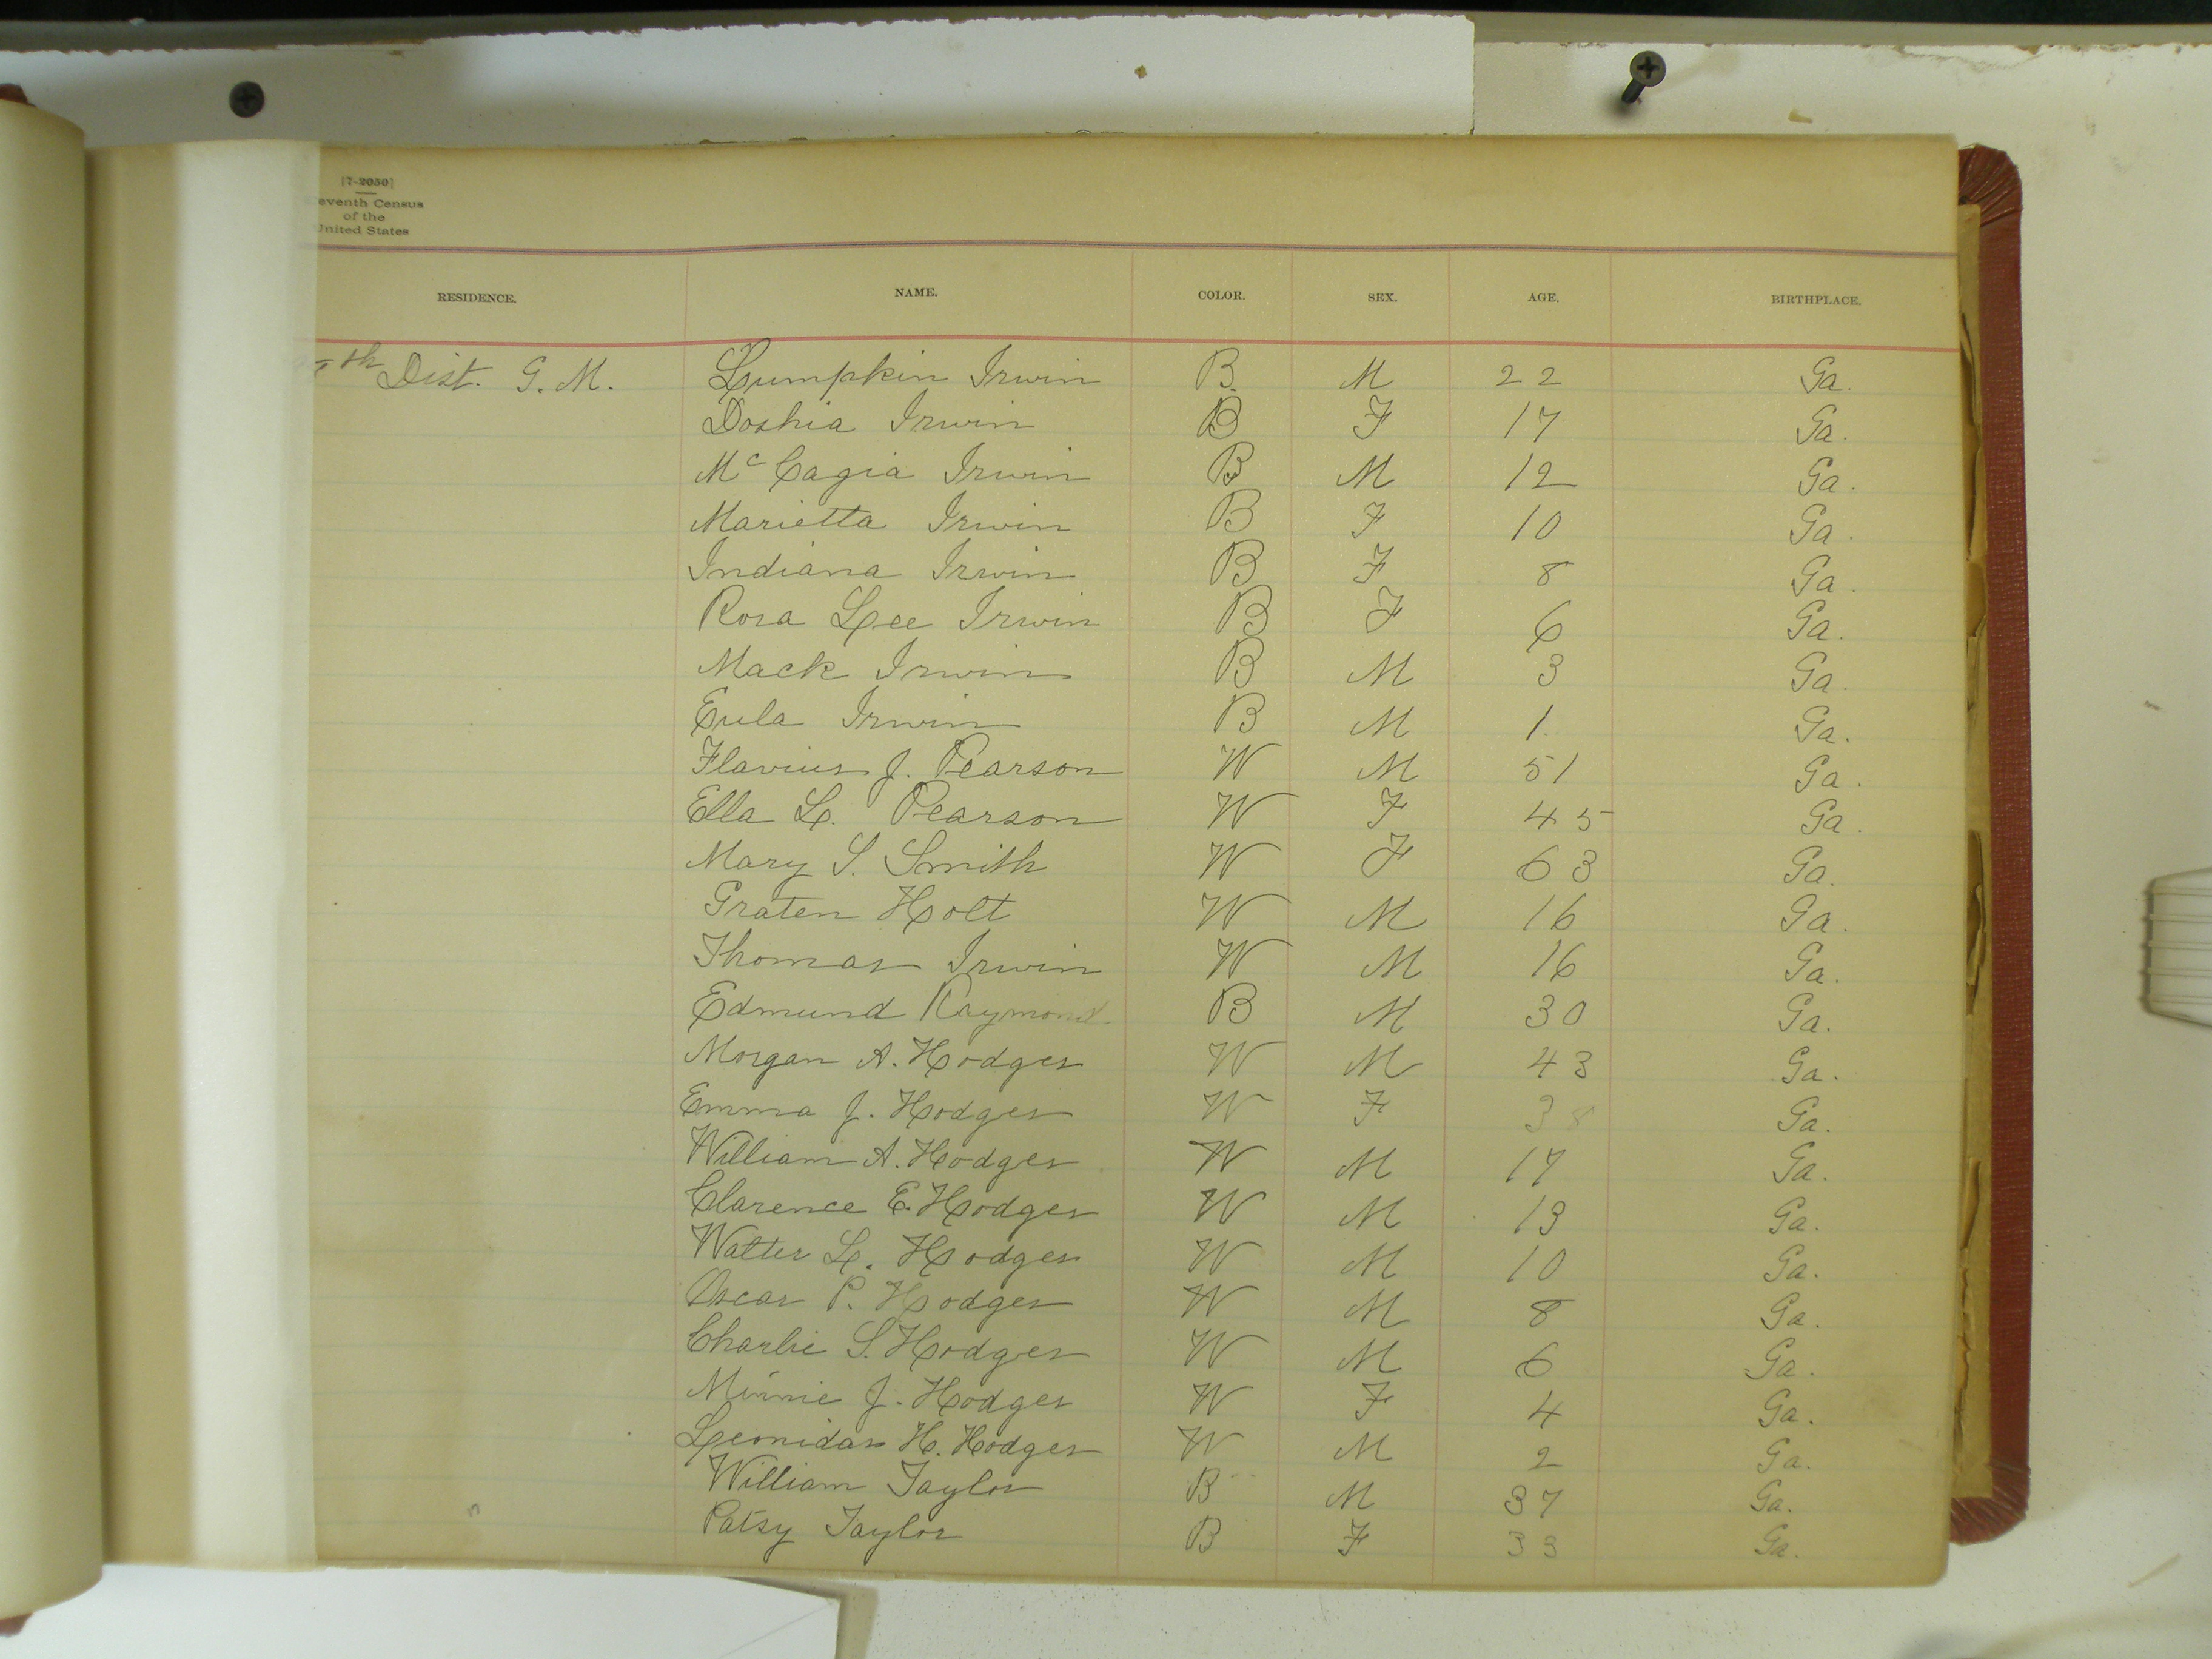 [7-2050]
eventh Census
of the
United States
RESIDENCE. NAME. COLOR. SEX. AGE. BIRTHPLACE.
th Dist. G. M. Lumpkin Irwin B. M 22 Ga.
Doshia Irwin B F 17 Ga.
Mc Cagia Irwin B M 12 Ga.
Marietta Irwin B F 10 Ga.
Indiana Irwin B F 8 Ga.
Rosa Lee Irwin B F 6 Ga.
Mack Irwin B M 3 Ga.
Eula Irwin B M 1 Ga.
Flavius J. Pearson W M 51 Ga.
Ella L. Pearson W F 45 Ga.
Mary S. Smith W F 63 Ga.
Graten Holt W M 16 Ga.
Thomas Irwin W M 16 Ga.
Edmund Raymond B M 30 Ga.
Morgan A. Hodges W M 43 Ga.
Emma J. Hodges W F 38 Ga.
William A. Hodges W M 17 Ga.
Clarence E. Hodges W M 13 Ga.
Walter L. Hodges W M 10 Ga.
Oscar P. Hodges W M 8 Ga.
Charlie S. Hodges W M 6 Ga.
Minnie J. Hodges W F 4 Ga.
Leonidas H. Hodges W M 2 Ga.
William Taylor B M 37 Ga.
Patsy Taylor B F 33 Ga.